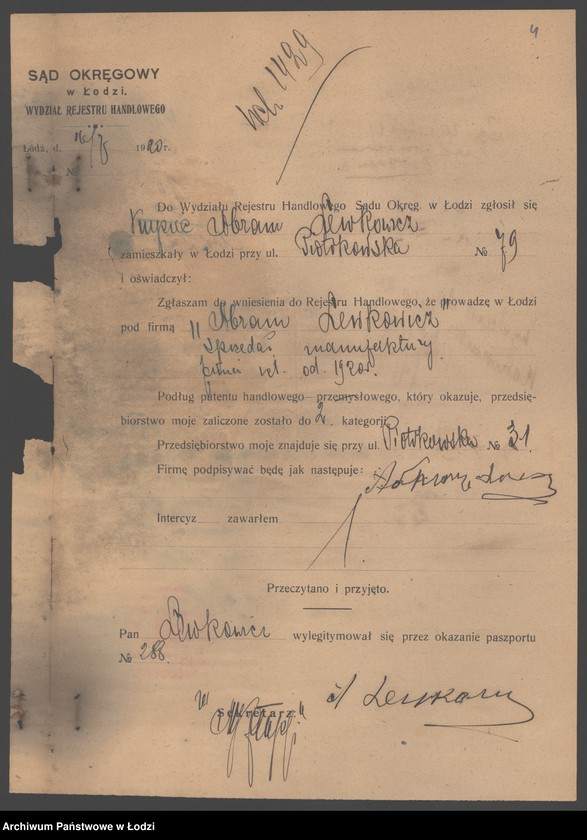 4
SĄD OKRĘGOWY
w Łodzi.
WYDZIAŁ REJESTRU HANDLOWEGO
1429
Łódź, d. 16/X 1920 r.
№
Do Wydziału Rejestru Handlowego Sądu Okręg. w Łodzi zgłosił się
Kupiec Abram Lewkowicz
zamieszkały w Łodzi przy ul. Piotrkowska № 79
i oświadczył:
Zgłaszam do wniesienia do Rejestru Handlowego, że prowadzę w Łodzi
pod firmą "Abram Lewkowicz"
sprzedaż manufaktury
od 1920r.
Podług patentu handlowego—przemysłowego, który okazuje, przedsię-
biorstwo moje zaliczone zostało do 2. kategorji
Przedsiębiorstwo moje znajduje się przy ul. Piotrkowska № 31.
Firmę podpisywać będę jak następuje:
Intercyz zawarłem
Przeczytano i przyjęto.
Pan Lewkowicz wylegitymował się przez okazanie paszportu
№ 288.
Sekretarz:
Archiwum Państwowe w Łodzi